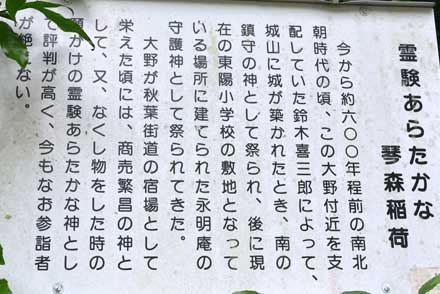 霊験あらたかな
琴森稲荷
今から約六〇〇年程前の南北
朝時代の頃、この大野付近を支
配していた鈴木喜三郎によって、
城山に城が築かれたとき、南の
鎮守の神として祭られ、後に現
在の東陽小学校の敷地となって
いる場所に建てられた永明庵の
守護神として祭られてきた。
大野が秋葉街道の宿場として
栄えた頃には、商売繁昌の神と
して、又、なくし物をした時の
願かけの霊験あらたかな神とし
て評判が高く、今もなお参詣者
が絶えない。